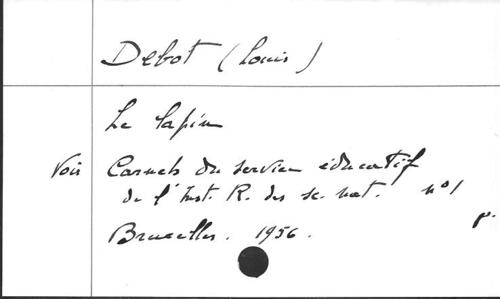 Debot (Louis)
Le lapin
Voir Carnets du service éducatif
de l'Inst. R. des sc. nat. n°1
p.
Bruxelles. 1956.